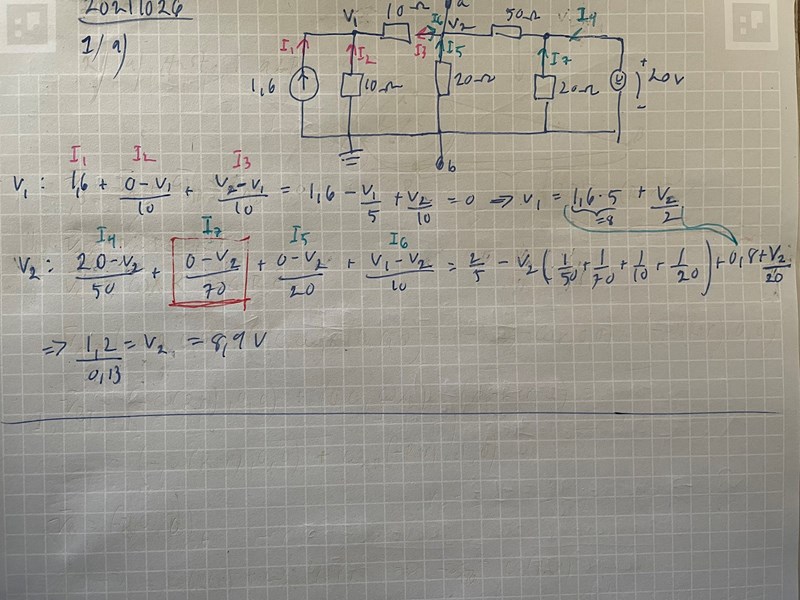 20211026
1/a)
V₁ 10Ω I₆ a V₂ 50Ω I₄
I₁ I₂ I₃ I₅ I₇
1,6 10Ω 20Ω 20Ω V + 20V -
b
I₁ I₂ I₃
V₁: 1,6 + (0-V₁)/10 + (V₂-V₁)/10 = 1,6 - V₁/5 + V₂/10 = 0 => V₁ = 1,6·5 + V₂/2
=8
I₄ I₇ I₅ I₆
V₂: (20-V₂)/50 + (0-V₂)/70 + (0-V₂)/20 + (V₁-V₂)/10 = 2/5 - V₂(1/50 + 1/70 + 1/10 + 1/20) + 0,8 + V₂/20
=> 1,2/0,13 = V₂ = 8,9 V